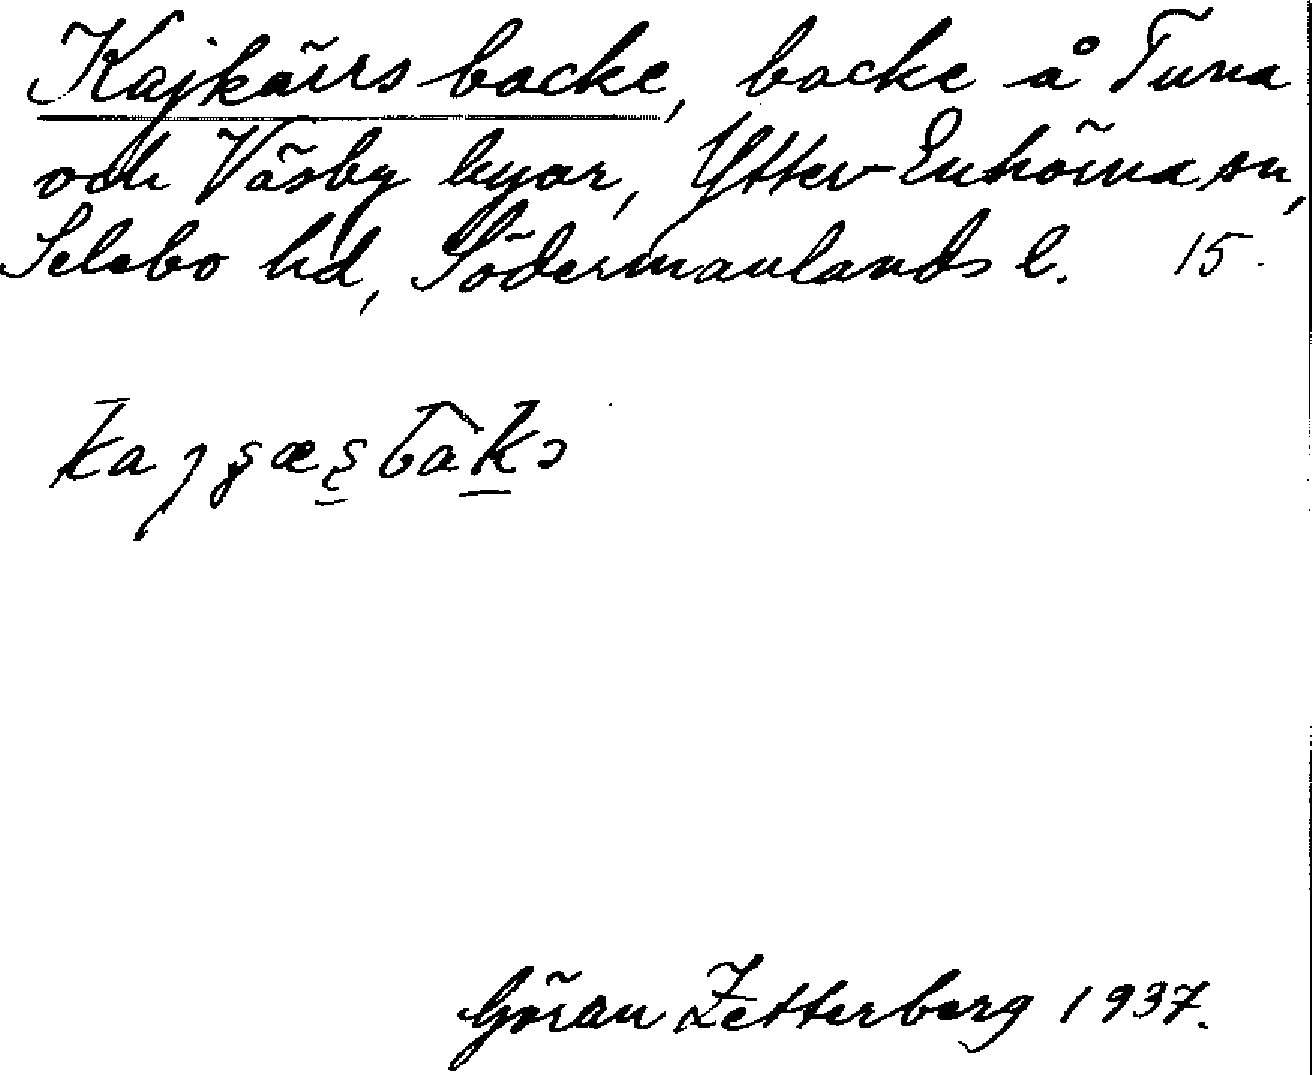 Kajkärrs backe, backe å Tuna
och Väsby byar, Ytter-Enhörna sn,
Selebo hd, Södermanlands l. 15.
Göran Zetterberg 1937.